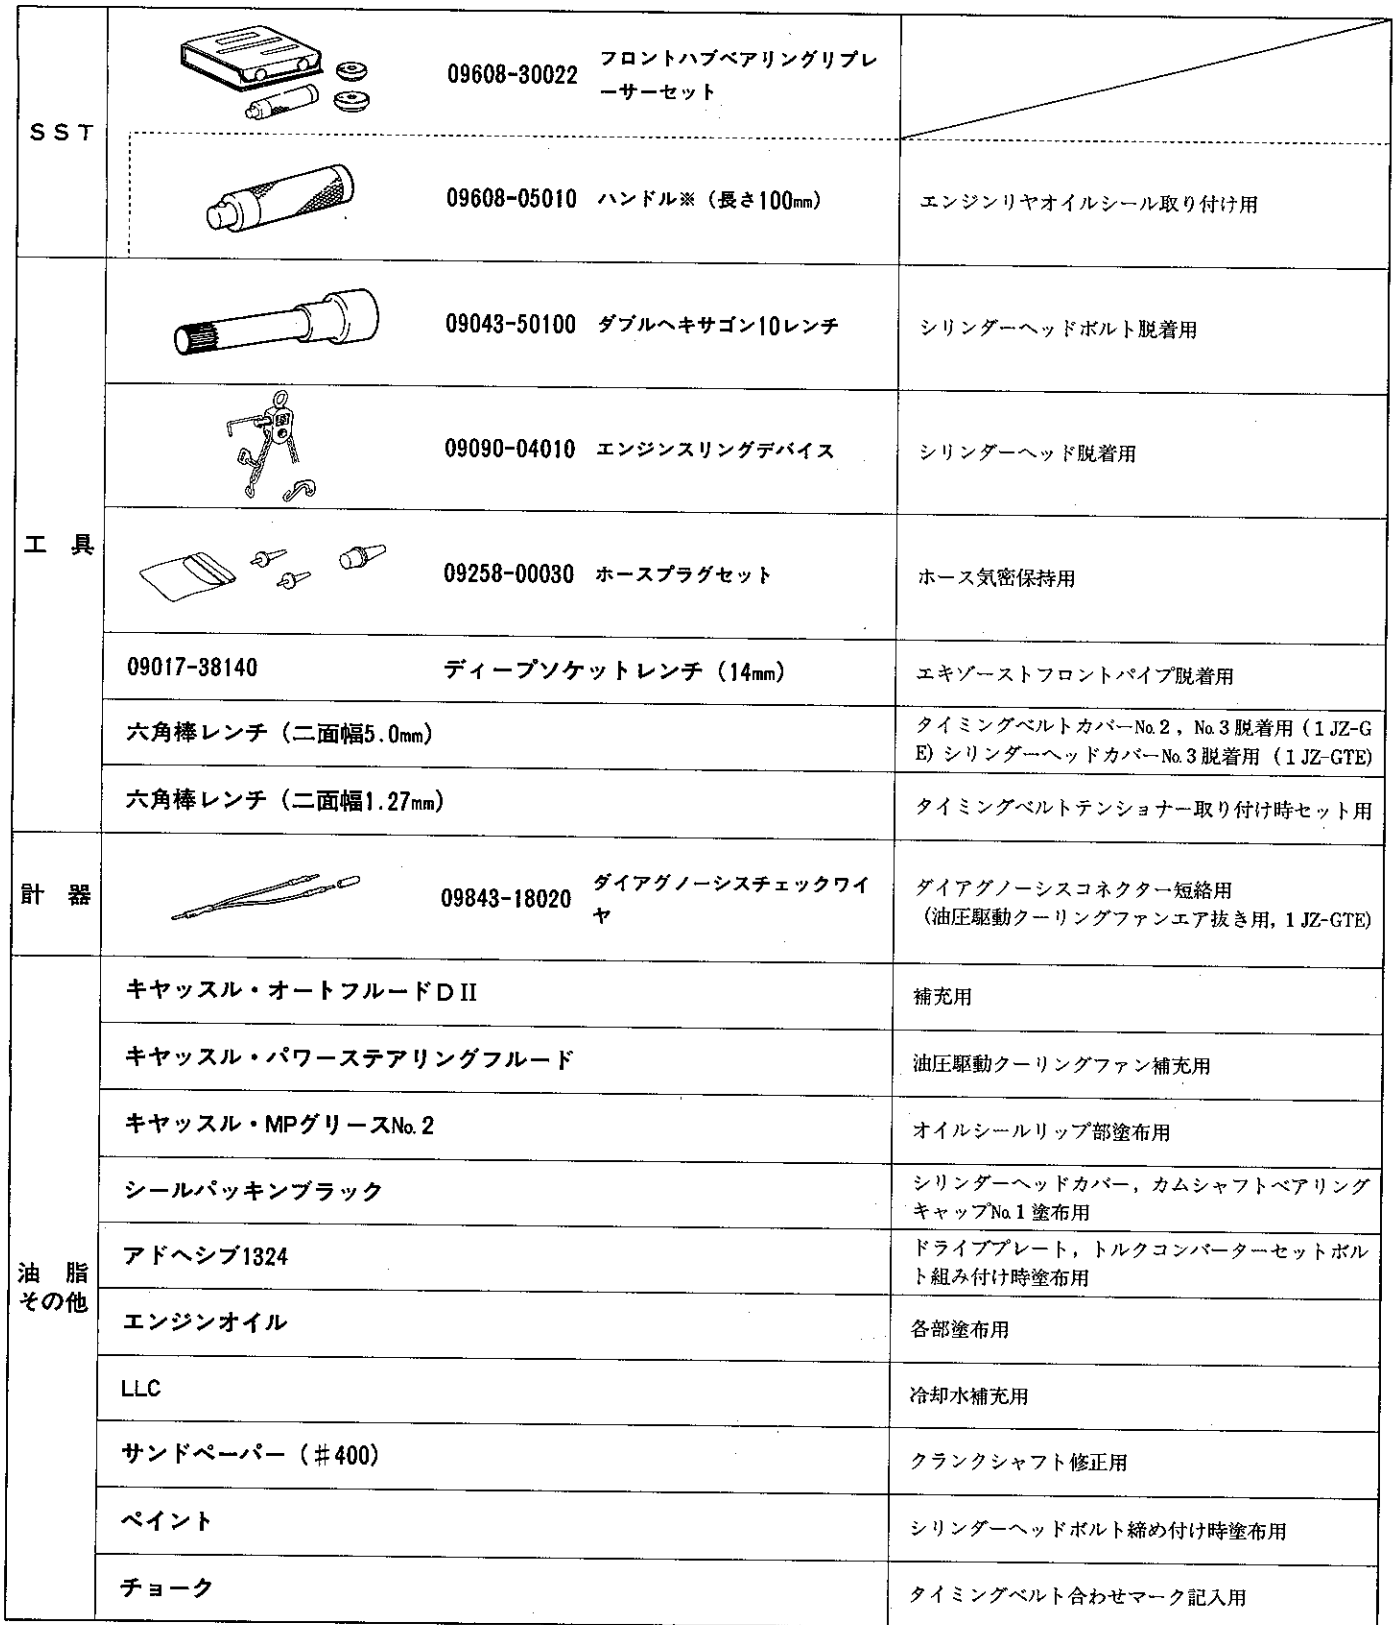 SST
09608-30022 フロントハブベアリングリプレ
ーサーセット
09608-05010 ハンドル※（長さ100mm）
エンジンリヤオイルシール取り付け用
工 具
09043-50100 ダブルヘキサゴン10レンチ
シリンダーヘッドボルト脱着用
09090-04010 エンジンスリングデバイス
シリンダーヘッド脱着用
09258-00030 ホースプラグセット
ホース気密保持用
09017-38140 ディープソケットレンチ（14mm）
エキゾーストフロントパイプ脱着用
六角棒レンチ（二面幅5.0mm）
タイミングベルトカバーNo.2，No.3脱着用（1JZ-G
E）シリンダーヘッドカバーNo.3脱着用（1JZ-GTE）
六角棒レンチ（二面幅1.27mm）
タイミングベルトテンショナー取り付け時セット用
計 器
09843-18020 ダイアグノーシスチェックワイ
ヤ
ダイアグノーシスコネクター短絡用
（油圧駆動クーリングファンエア抜き用，1JZ-GTE）
油 脂
その他
キヤッスル・オートフルードDII
補充用
キヤッスル・パワーステアリングフルード
油圧駆動クーリングファン補充用
キヤッスル・MPグリースNo.2
オイルシールリップ部塗布用
シールパッキンブラック
シリンダーヘッドカバー，カムシャフトベアリング
キャップNo.1塗布用
アドヘシブ1324
ドライブプレート，トルクコンバーターセットボル
ト組み付け時塗布用
エンジンオイル
各部塗布用
LLC
冷却水補充用
サンドペーパー（＃400）
クランクシャフト修正用
ペイント
シリンダーヘッドボルト締め付け時塗布用
チョーク
タイミングベルト合わせマーク記入用